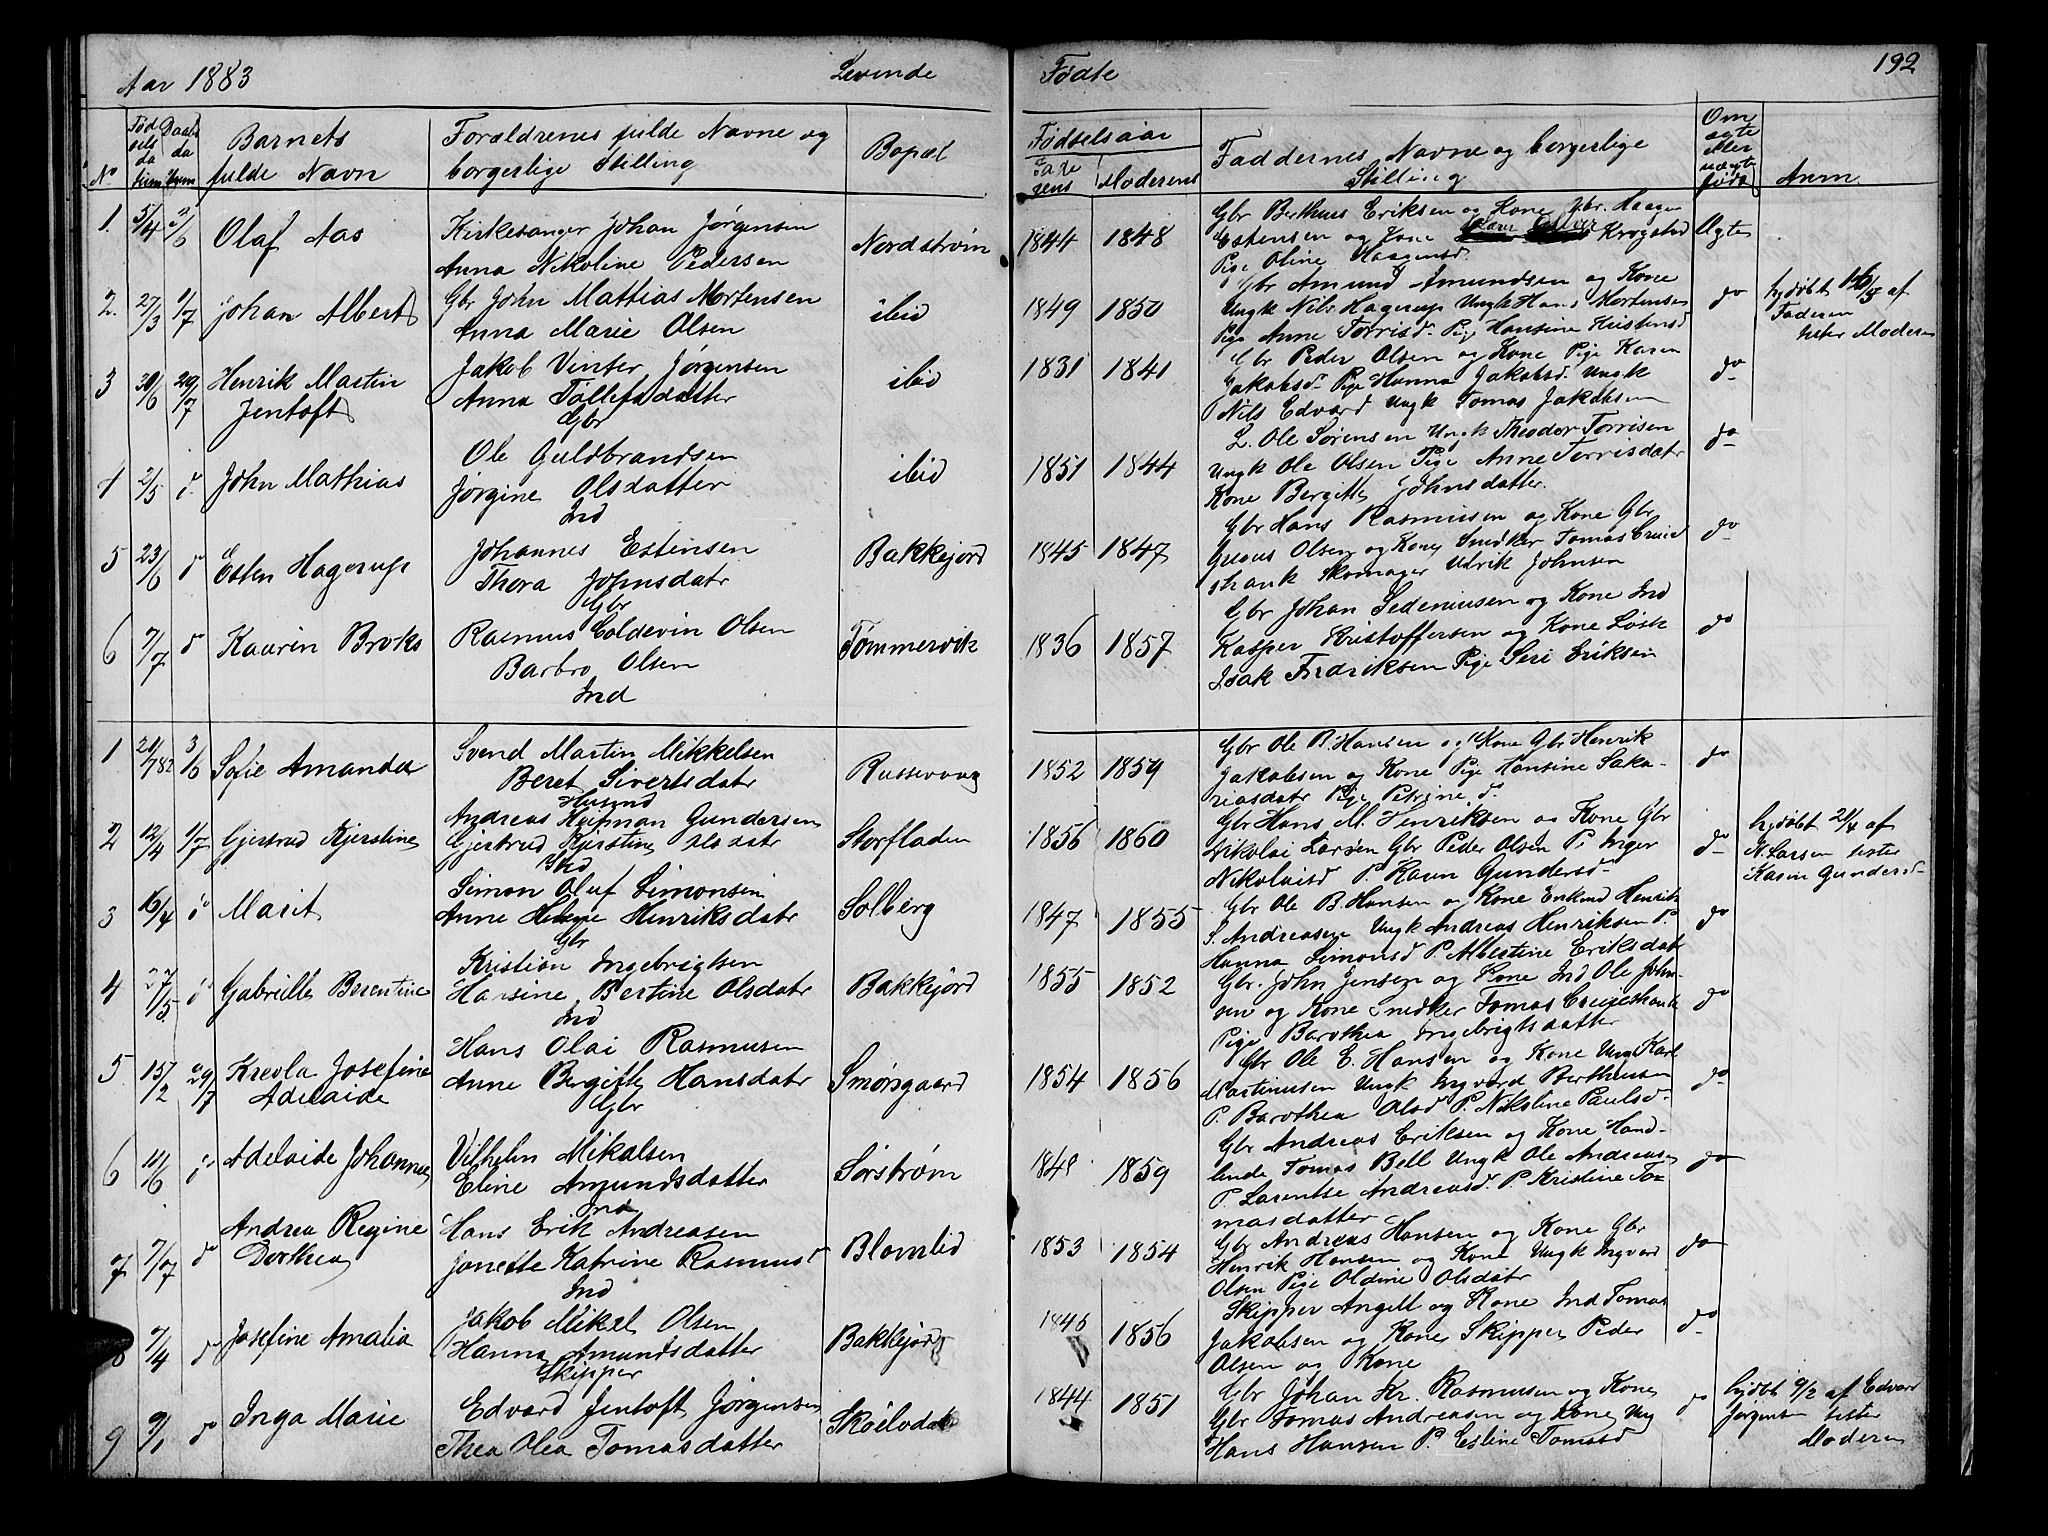 Aar 1883 Levinde Fødte 192
No
Barnets fulde Navn
Forældrenes fulde Navne og borgerlige Stilling
Bopæl
Fødselsaar
Moderens
Faddernes Navne og borgerlige Stilling
Anm.
1 5/4 Olaf Aas
Kirkesanger Johan Jørgensen
Anna Nikoline Pedersen
Nordstrøm 1844 1848
Gbr Berthus Eriksen og Kone Gbr. Haagen
Estensen og Kone Krogstad
Pige Oline Haagensd.
Ægte
2. 27/3 1/7 Johan Albert
Gbr John Mathias Mortensen
Anna Marie Olsen
ibid 1849 1850
Gbr Amund Amundsen og Kone
Ungk Nils Hagerup Ungk Hans Mortensen
Pige Anne Torrisd. Pige Hansine
do
hjdøbt af
Faderen
Moderen
3 30/6 29/7 Henrik Martin
Jentoft
Jakob Vinter Jørgensen
Anna Tollefsdatter
Gbr
ibid 1831 1841
Gbr Peder Olsen og Kone Pige Karen
Jakobsd. Pige Hanna Jakobsd. Ungk
Nils Edvard Ungk Tomas Jakobsen
do
2/5 d. John Mathias
Ole Guldbrandsen
Jørgine Olsdatter
Ind
ibid 1851 1844
L. Ole Sørensen Ungk Theodor Torrisen
Ungk Ole Olsen Pige Anne Torrisdatr
Kone Bergitte Johnsdatter.
do
5 23/6 do Esten Hagerup
Johannes Estensen
Thora Johnsdatr
Gbr
Bakkejord 1845 1847
Gbr Hans Rasmusen og Kone Gbr
Olsen og Kone Snedker Tomas
Skomager Udrik Johnsen
do
6 7/7 do Kaurin Broks
Rasmus Coldevin Olsen
Barbro Olsen
Ind
Tømmervik 1836 1857
Gbr Johan Sedeniusen og Kone Ind
Kasper Kristoffersen og Kone Løsk
Isak Fredriksen Pige Seri Eriksen
do
1 3/6 Sofie Amanda
Svend Martin Mikkelsen
Beret Sivertsdatr
Husmd
Russevaag 1852 1859
Gbr Ole B. Hansen og Kone Gbr Henrik
Jakobsen og Kone Pige Hansine Saka-
riasdatr Pige Petrine do
do
2 12/4 1/7 Gjertrud Kjerstine
Andreas Gundersen
Gjertrud Kjerstine Olsdatr
Ind
Storfladen 1856 1860
Gbr Hans M. Henriksen og Kone Gbr
Nikolai Larsen Gbr Peder Olsen P. Inger
Nikolaisd P. Karen Gundersd.
do
hjdøbt 21/4 af
N. Larsen
Karen Gundersd.
3 16/4 do Marit
Simon Oluf Simonsen
Anne Helene Henriksdatr
Gbr
Solberg 1847 1855
Gbr Ole B. Hansen og Kone Enkmd Henrik
S. Andreasen Ungk Andreas Henriksen P.
Hanna Simonsd P. Albertine Eriksdatr
do
4 27/5 do Gabrielle Berentine
Kristian Ingebrigtsen
Hansine Bertine Olsdatr
Ind
Bakkejord 1855 1852
Gbr. John Jensen og Kone Ind Ole John-
sen og Kone Snedker Tomas
Pige Barothea Ingebrigtsdatter
do
5 15/2 29/7 Kreola Josefine
Adelaide
Hans Olai Rasmusen
Anne Bergitte Hansdatr
Gbr
Smørsgaard 1854 1856
Gbr Ole E. Hansen og Kone Ungk Karl
Martinusen Ungk Ingvard Berthusen
P. Barothea Olsd P. Nikoline Paulsd.
do
6 do Adelaide Johanna
Vilhelm Mikalsen
Eline Amundsdatter
Ind
Sørstrøm 1848 1859
Gbr Andreas Eriksen og Kone Hand-
lende Tomas Bell Ungk Ole Andreasen
P. Larentse Andreasd. P. Kristine To-
masdatter
do
7 7/7 do Andrea Regine
Dorthea
Hans Erik Andreasen
Janette Katrine Rasmusd
Ind
Blomlid 1853 1854
Gbr Andreas Hansen og Kone Gbr
Henrik Hansen og Kone Ungk Ingvar
Olsen Pige Oldine Olsdatr
do
8 7/4 do Josefine Amalia
Jakob Mikal Olsen
Hanna Amundsdatter
Skipper
Bakkejord 1845 1856
Skipper Angell og Kone Ind Tomas
Jakobsen og Kone Skipper Peder
Olsen og Kone
do
9 9/1 do Inga Marie
Edvard Jentoft Jørgensen
Thea Olea Tomasdatter
1844 1851
Gbr Johan Kr. Rasmusen og Kone
Gbr Tomas Andreasen og Kone Ung
Hans Hansen P. Esline Tomasd
do
hjdøbt 9/2 af Edvard
Jørgensen
Moderen